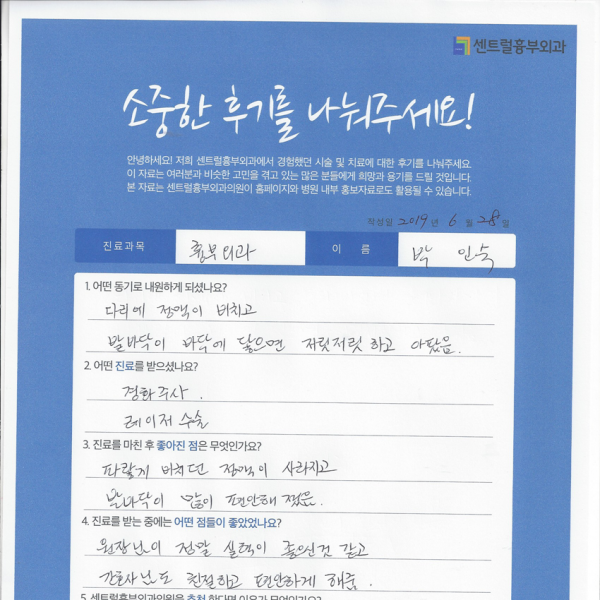 센트럴흉부외과
소중한 후기를 나눠주세요!
안녕하세요! 저희 센트럴흉부외과에서 경험했던 시술 및 치료에 대한 후기를 나눠주세요.
이 자료는 여러분과 비슷한 고민을 겪고 있는 많은 분들에게 희망과 용기를 드릴 것입니다.
본 자료는 센트럴흉부외과의원이 홈페이지와 병원 내부 홍보자료로도 활용될 수 있습니다.
작성일 2019 년 6 월 28 일
진료과목 흉부외과 이 름 박 인숙
1. 어떤 동기로 내원하게 되셨나요?
다리에 정맥이 비치고
발바닥이 바닥에 닿으면 저릿저릿 하고 아팠음.
2. 어떤 진료를 받으셨나요?
경화주사.
레이저 수술
3. 진료를 마친 후 좋아진 점은 무엇인가요?
파랗게 비치던 정맥이 사라지고
발바닥이 많이 편안해 졌음.
4. 진료를 받는 중에는 어떤 점들이 좋았었나요?
원장님이 정말 실력이 좋으신것 같고
간호사님도 친절하고 편안하게 해줌.
5. 센트럴흉부외과의원을 추천 한다면 이유가 무엇인가요?